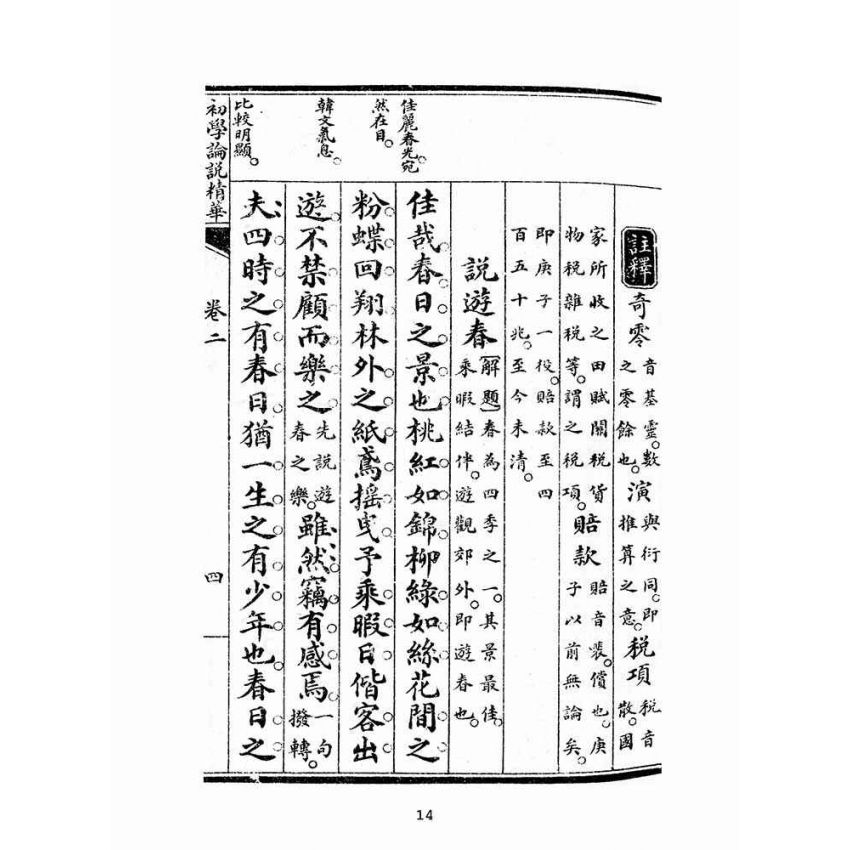 佳麗春光。宛
然在目。
韓文氣息。
比較明顯。
註釋 奇零 音基靈。數之零餘也。 演 與衍同。即推算之意。 税項 税音散。國
家所收之田賦關税貨物税雜税等。謂之税項。 賠款 賠音裴。償也。庚子以前無論矣。
即庚子一役。賠款至四百五十兆。至今未清。
説遊春 【解題】春為四季之一。其景最佳。乘暇結伴。遊觀郊外。即遊春也。
佳哉春日之景也桃紅如錦柳綠如絲花間之
粉蝶回翔林外之紙鳶搖曳予乘暇日偕客出
遊不禁顧而樂之 先説遊春之樂。 雖然竊有感焉 一句撥轉。
夫四時之有春日猶一生之有少年也春日之
初學論説精華 卷二 四
14